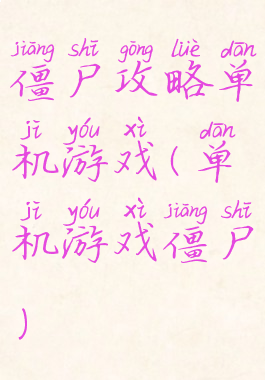 jiāng shī gōng lüè dān
僵尸攻略单
jī yóu xì dān
机游戏(单
jī yóu xì jiāng shī
机游戏僵尸
)